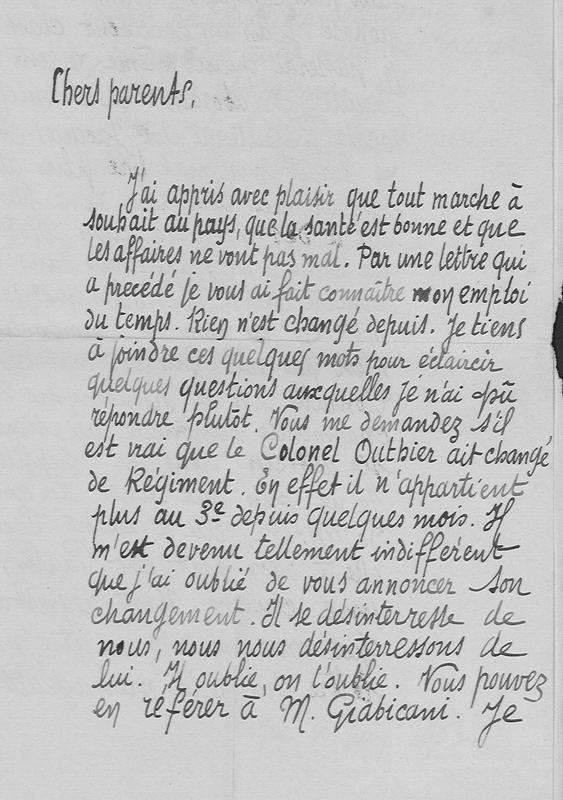 Chers parents,
J'ai appris avec plaisir que tout marche à
souhait au pays, que la santé est bonne et que
les affaires ne vont pas mal. Par une lettre qui
a precédé je vous ai fait connaître mon emploi
du temps. Rien n'est changé depuis. Je tiens
à joindre ces quelques mots pour éclaircir
quelques questions auxquelles je n'ai pû
répondre plutot. Vous me demandez s'il
est vrai que le Colonel Outhier ait changé
de Régiment. En effet il n'appartient
plus au 3e depuis quelques mois. Il
m'est devenu tellement indifférent
que j'ai oublié de vous annoncer son
changement. Il se désinterresse de
nous, nous nous désinterressons de
lui. Il oublie, on l'oublie. Vous pouvez
en référer à M. Giabicani. Je